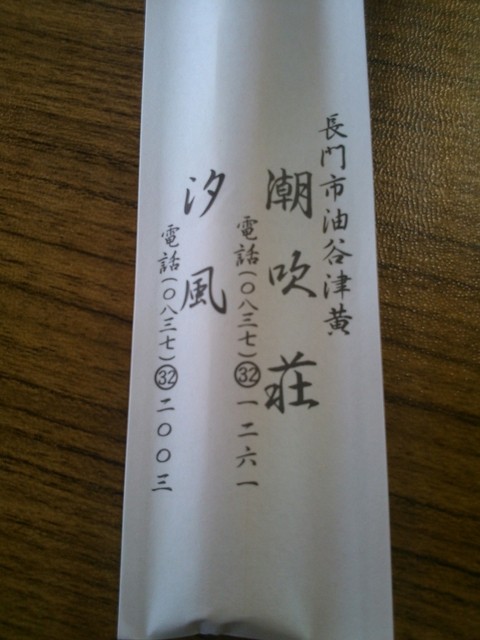 長門市油谷津黄
潮吹荘
電話(〇八三七)㉜一二六一
汐風
電話(〇八三七)㉜二〇〇三